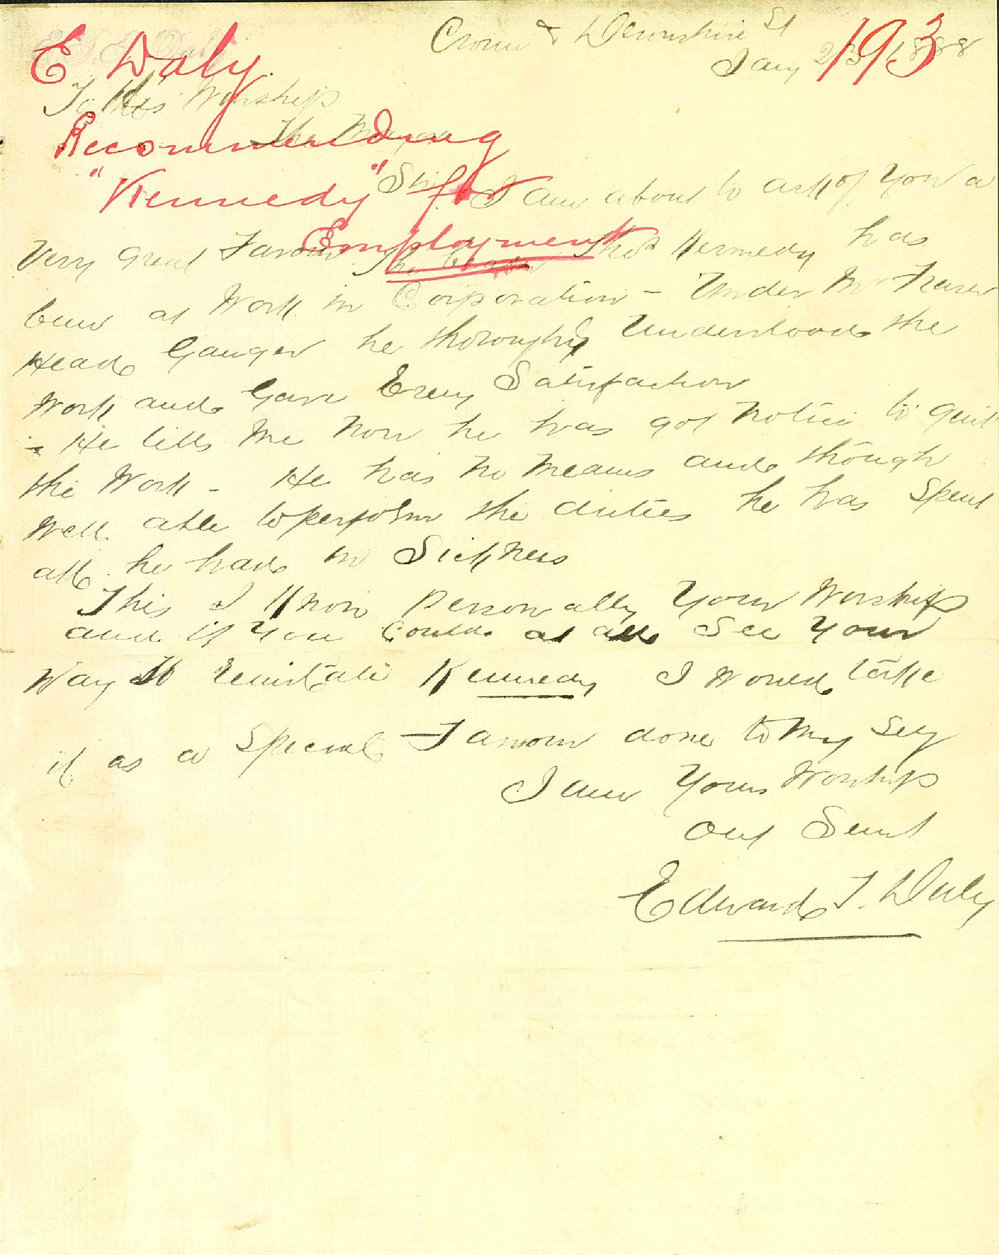 Crown & Devonshire St
Jany 23 1888
193
E Daly
To His Worship
The Mayor
Recommending
"Kennedy" for
Employment
Sir I am about to ask of You a
Very great Favour The Thos Kennedy has
been at Work in Corporation - Under Mr Fraser
Head Ganger he thoroughly Understands the
Work and Gave Every Satisfaction
- He tells Me Now he has got Notice to quit
the Work - He has No Means and though
Well able to perform the duties he has Spent
all he had in Sickness
This I Know Personally Your Worship
and if You Could at all See Your
Way to reinstate Kennedy I Would take
it as a Special Favour done to My Self
I am Yours Worship
Obt Servt
Edward T. Daly